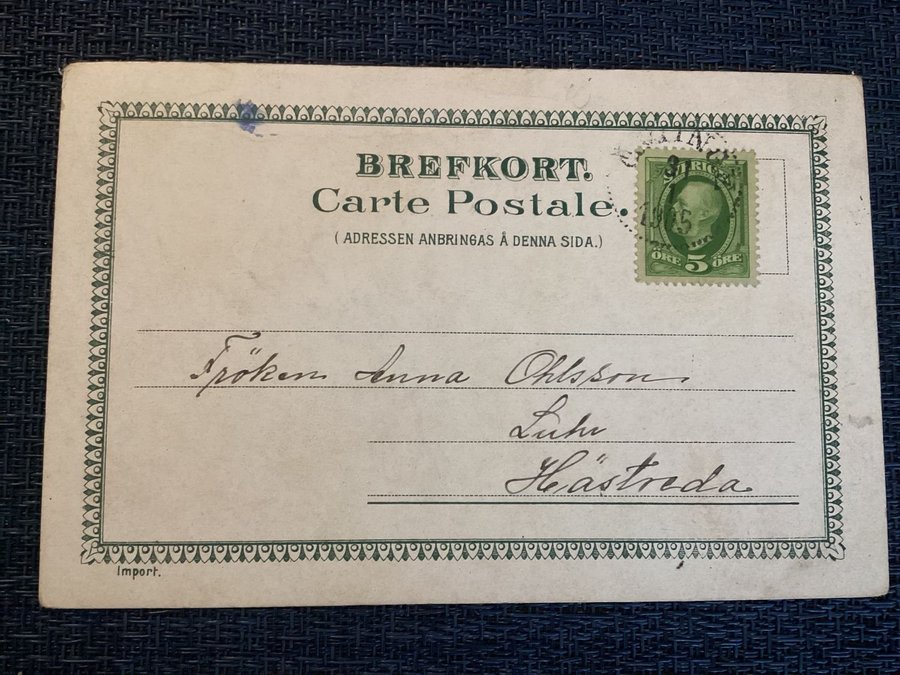 BREFKORT.
Carte Postale.
( ADRESSEN ANBRINGAS Å DENNA SIDA.)
SVERIGE
ÖRE 5 ÖRE
Fröken Anna Ohlsson
Luhr
Hästveda
Import.